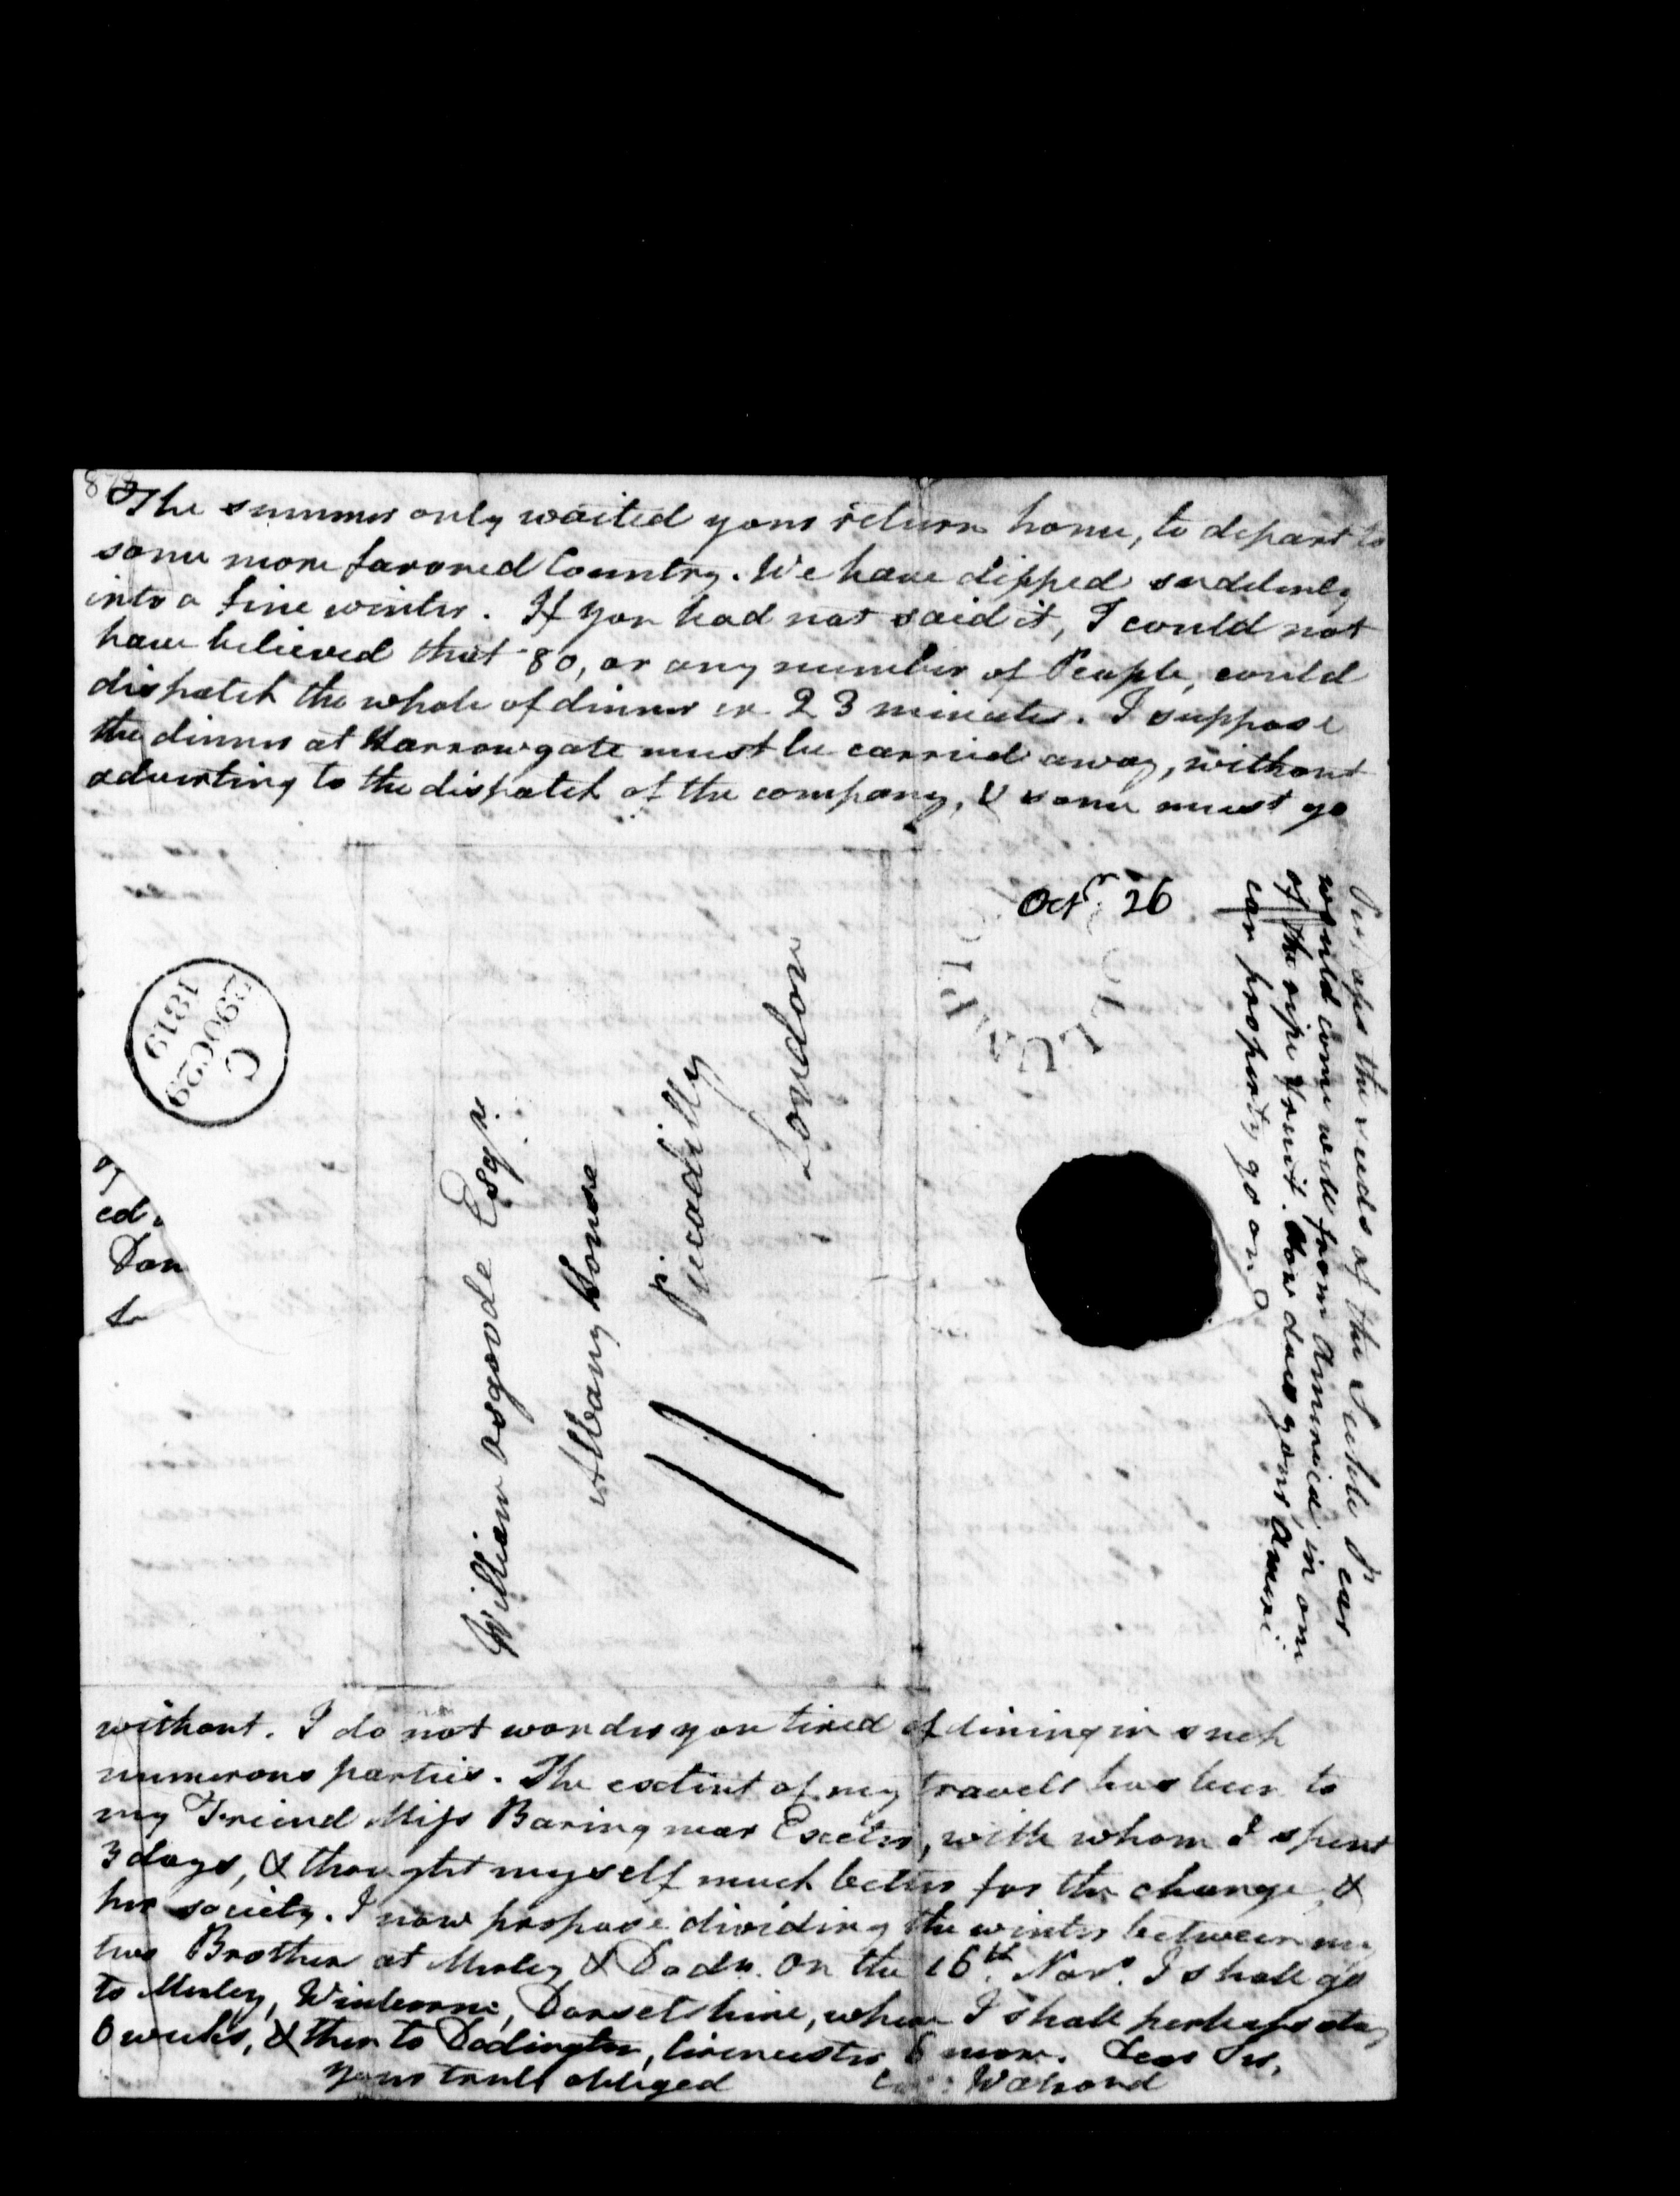 The summer only waited your return home, to depart to
some more favored Country. We have dipped suddenly
into a fine winter. If you had not said it, I could not
have believed that 80, or any number of People, could
dispatch the whole of dinner in 23 minutes. I suppose
the dinner at Harrowgate must be carried away, without
adverting to the dispatch of the company, & some must go
Octr. 26
Perhaps the seeds of the Seckle Pear
would come well from America, in one
of the ripe fruit. How does your Ameri:
can property go on?
C
29OC29
1819
William Osgoode Esqre
Albany House
Piccadilly
London
11
ed
Don
without. I do not wonder you tired of dining in such
numerous parties. The extent of my travels has been to
my Friend Miss Baring near Exeter, with whom I spent
3 days, & thought myself much better for the change, &
her society. I now propose dividing the winter between my
two Brothers at Merley & Dodn. On the 16th. Novr. I shall go
to Merley, Winborne, Dorsetshire, where I shall perhaps stay
6 weeks, & then to Dodington, Cirencester, 6 more. Dear Sir,
Yours truly obliged Walrond